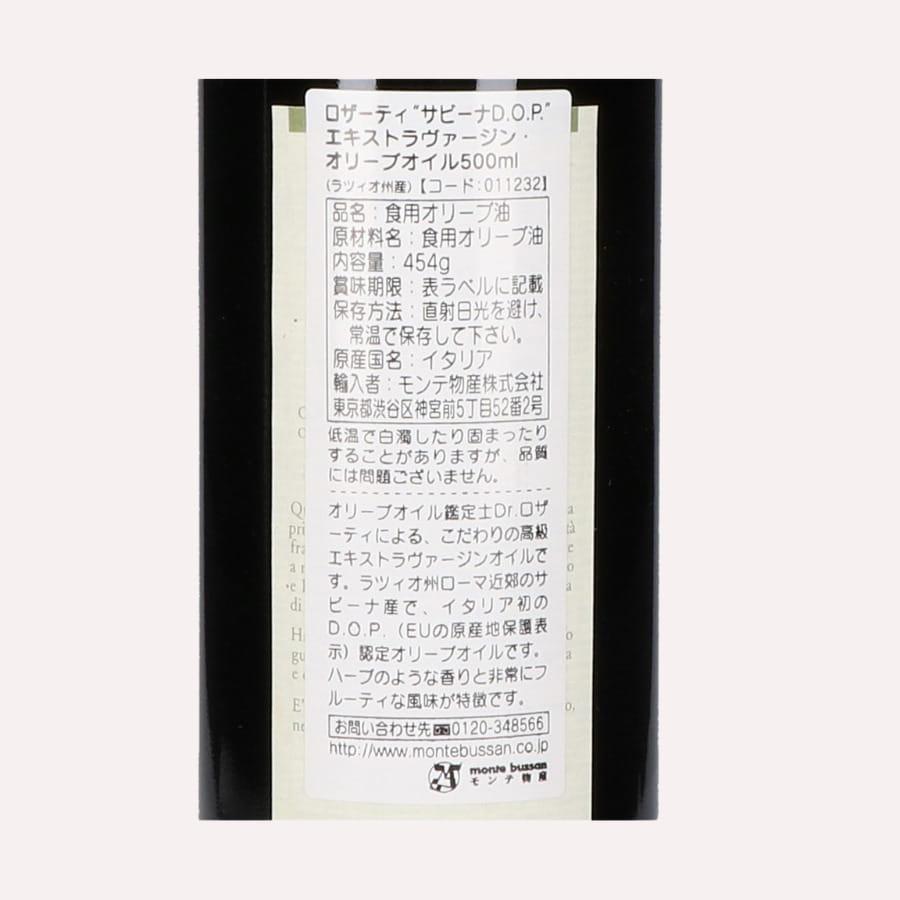 ロザーティ"サビーナD.O.P."
エキストラヴァージン・
オリーブオイル500ml
(ラツィオ州産)【コード:011232】
品名:食用オリーブ油
原材料名:食用オリーブ油
内容量:454g
賞味期限:表ラベルに記載
保存方法:直射日光を避け、
常温で保存して下さい。
原産国名:イタリア
輸入者:モンテ物産株式会社
東京都渋谷区神宮前5丁目52番2号
低温で白濁したり固まったり
することがありますが、品質
には問題ございません。
オリーブオイル鑑定士Dr.ロザ
ーティによる、こだわりの高級
エキストラヴァージンオイルで
す。ラツィオ州ローマ近郊のサ
ビーナ産で、イタリア初の
D.O.P.(EUの原産地保護表
示)認定オリーブオイルです。
ハーブのような香りと非常にフ
ルーティな風味が特徴です。
お問い合わせ先 0120-348566
http://www.montebussan.co.jp
monte bussan
モンテ物産